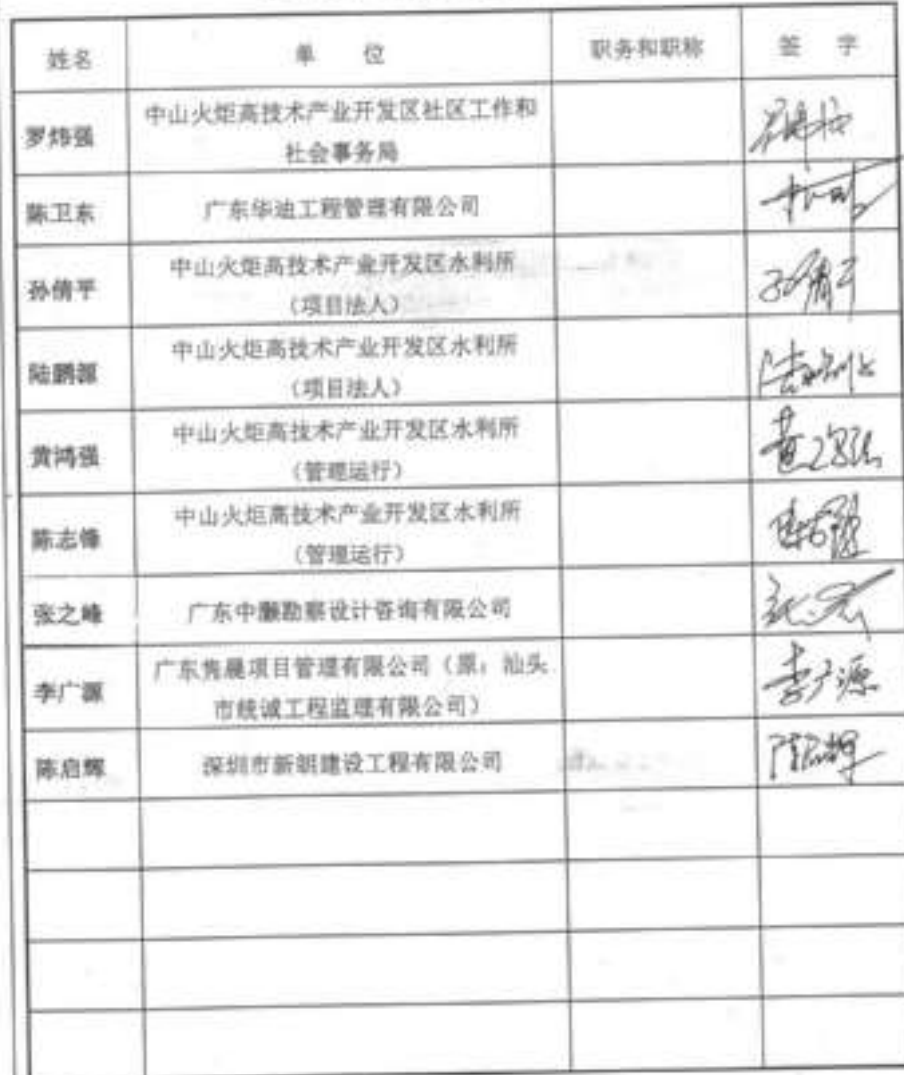 姓名 单 位 职务和职称 签 字
罗炜强 中山火炬高技术产业开发区社区工作和
社会事务局
陈卫东 广东华迪工程管理有限公司
孙倩平 中山火炬高技术产业开发区水利所
(项目法人) 孙倩平
陆鹏源 中山火炬高技术产业开发区水利所
(项目法人)
黄鸿强 中山火炬高技术产业开发区水利所
(管理运行)
陈志锋 中山火炬高技术产业开发区水利所
(管理运行)
张之峰 广东中灏勘察设计咨询有限公司
李广源 广东隽晟项目管理有限公司(原:汕头 李广源
市统诚工程监理有限公司)
陈启辉 深圳市新朗建设工程有限公司 陈启辉